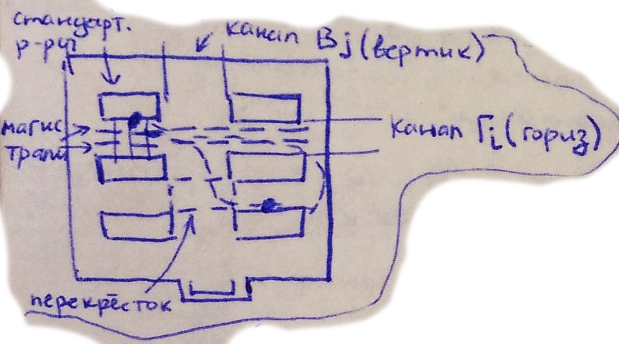 стандарт.
р-ры
канал Вj (вертик)
магис
трали
канал Гi (гориз)
перекрёсток